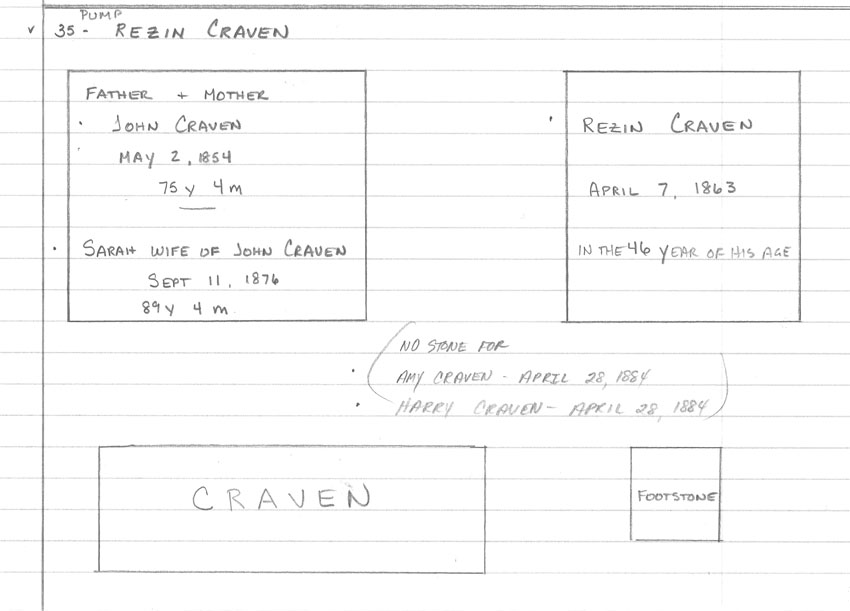 PUMP
v 35 - REZIN CRAVEN
FATHER + MOTHER
JOHN CRAVEN
MAY 2, 1854
75 Y 4 M
SARAH WIFE OF JOHN CRAVEN
SEPT 11, 1876
89 Y 4 M
REZIN CRAVEN
APRIL 7, 1863
IN THE 46 YEAR OF HIS AGE
NO STONE FOR
AMY CRAVEN - APRIL 28, 1884
HARRY CRAVEN - APRIL 28, 1884
CRAVEN
FOOTSTONE